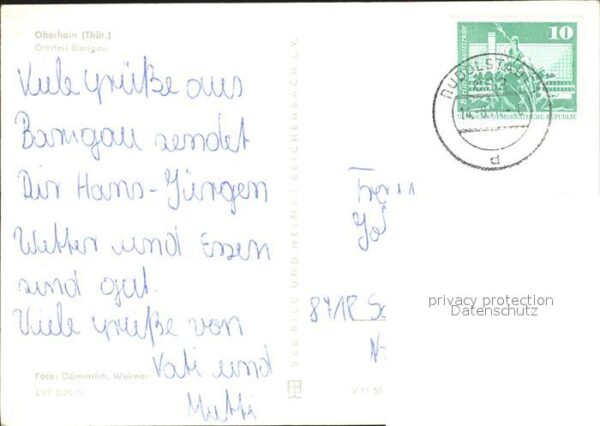 Oberhain (Thür.)
Ortsteil Barigau
Viele Grüße aus
Barigau sendet
Dir Hans-Jürgen
Wetter und Essen
sind gut.
Viele Grüße von
Vati und
Mutti
Foto: Dämmrich, Weimar
VERLAG BILD UND HEIMAT REICHENBACH I. V.
10
DEUTSCHE DEMOKRATISCHE REPUBLIK
RUDOLSTADT
d
8718
privacy protection
Datenschutz